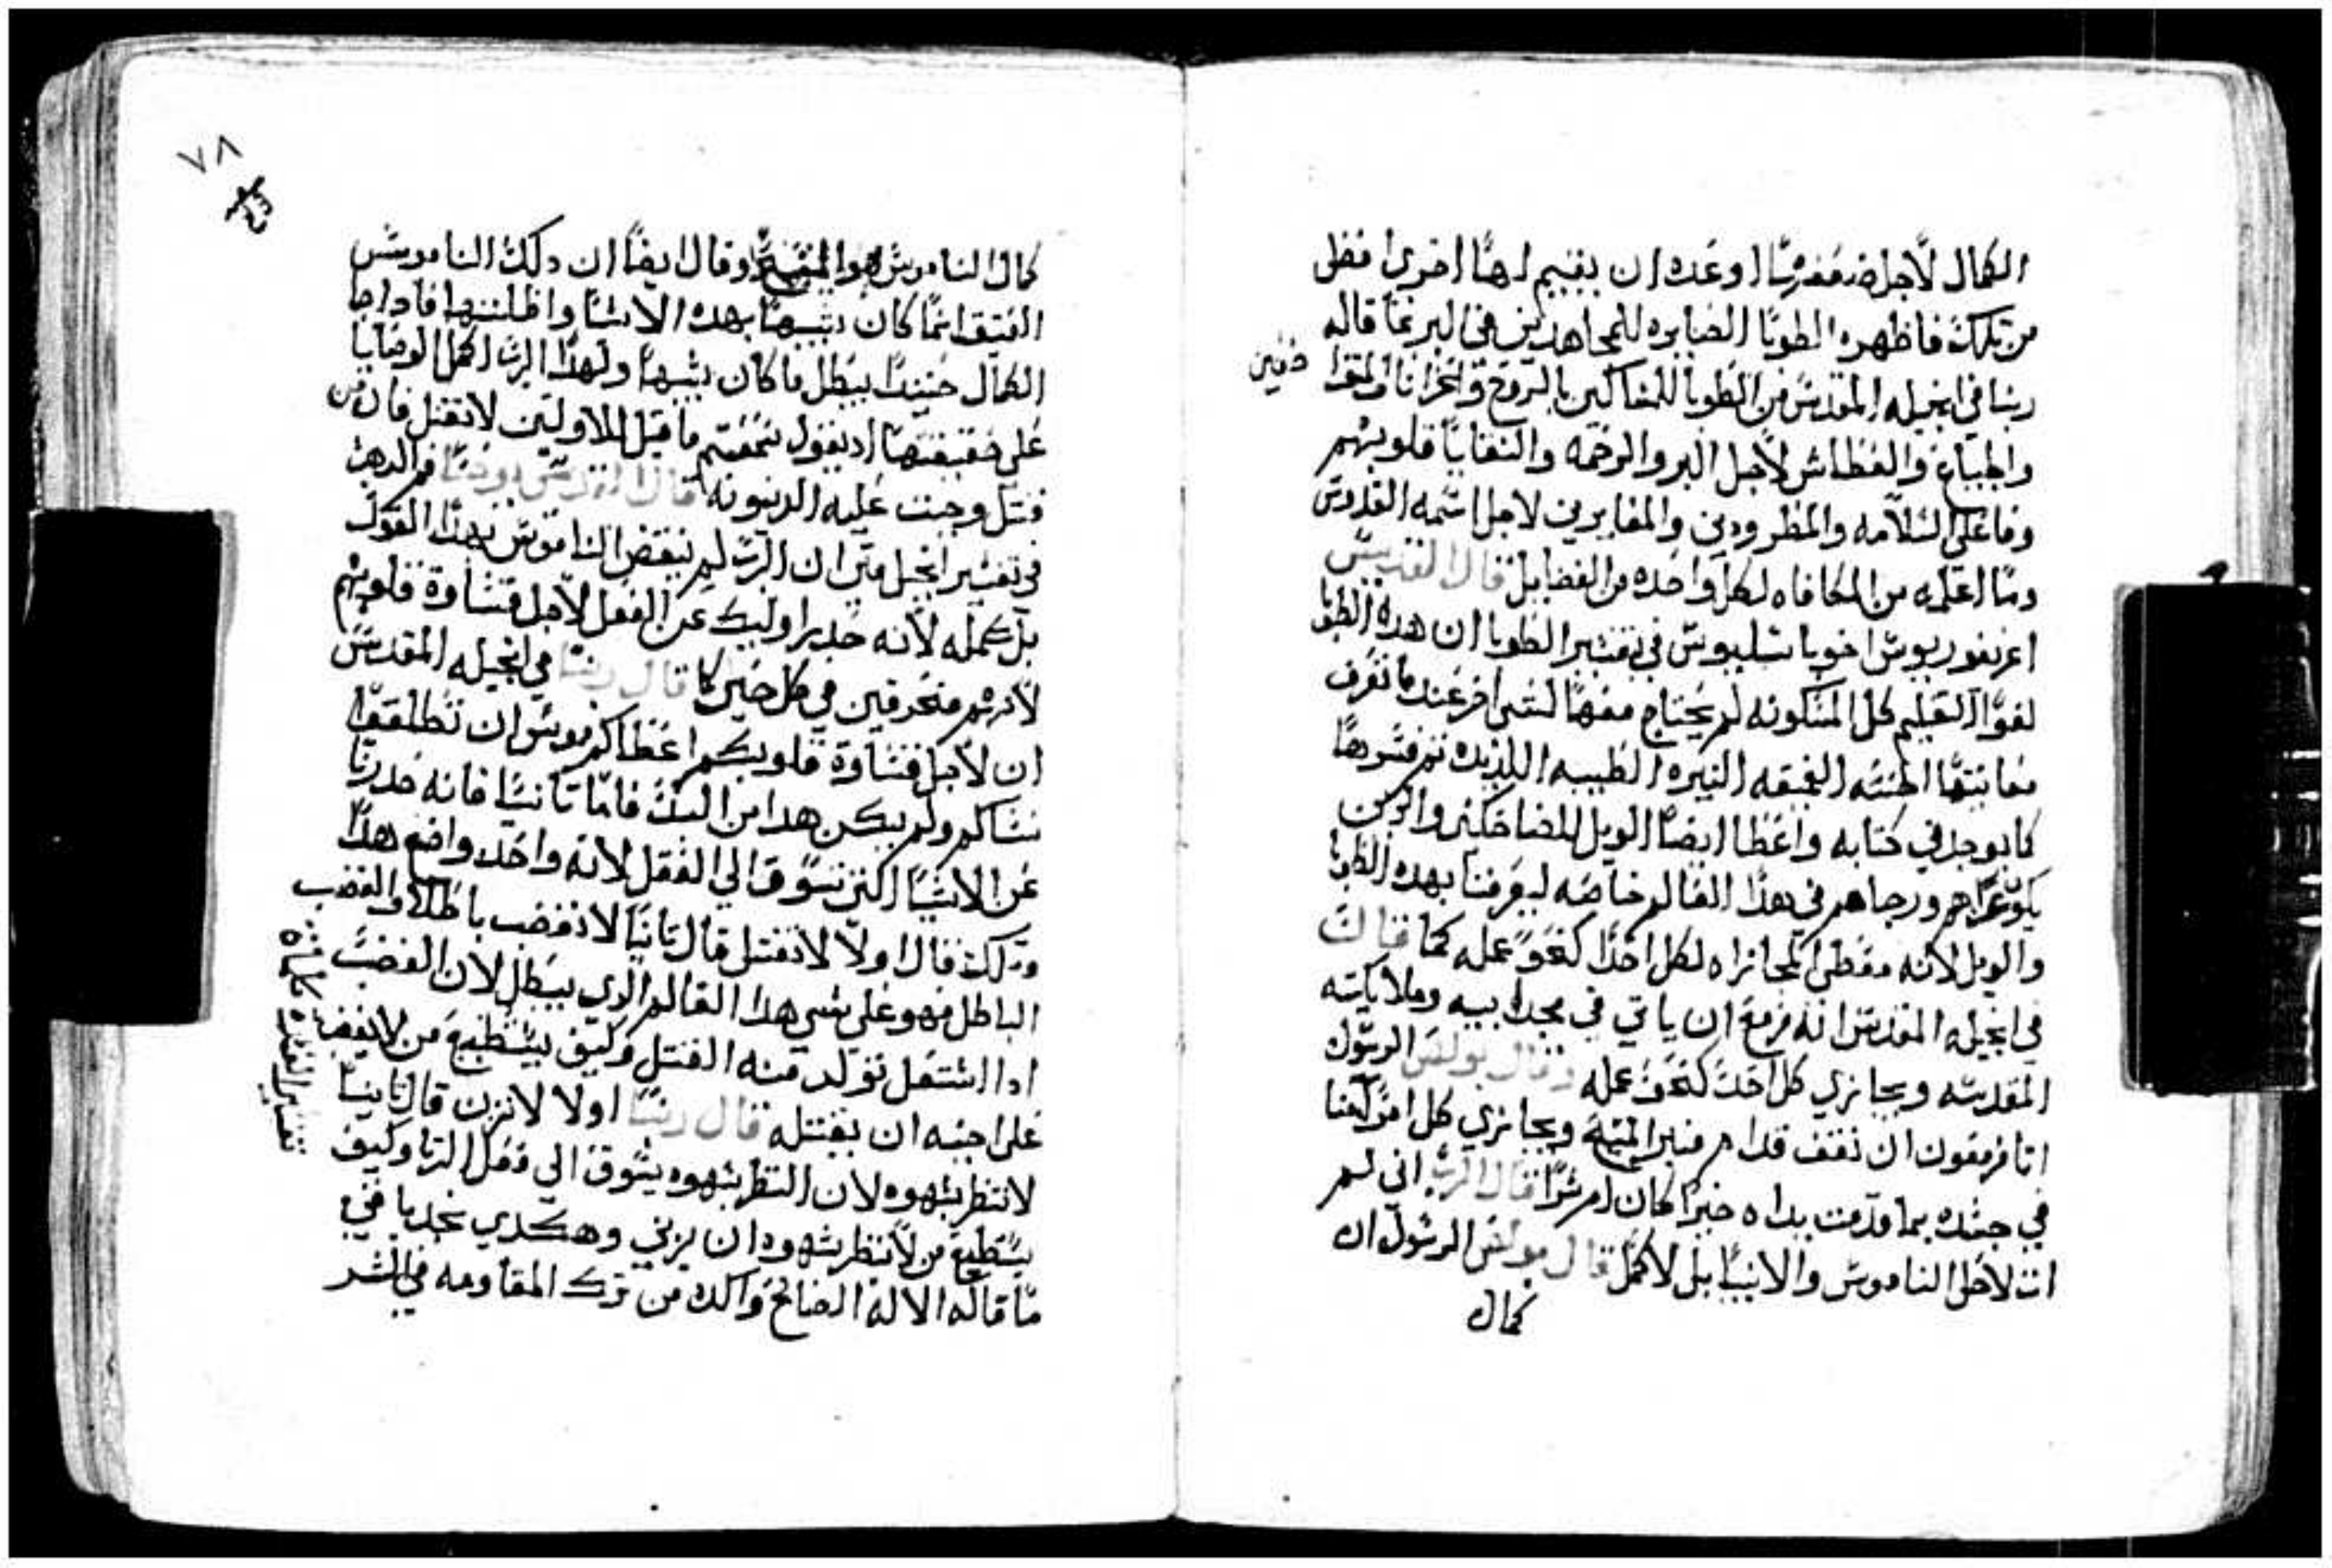 الكمال لاجل ضعف بشريتنا اوعده ان يقيم لهنا اخرى افضل
من تلك فاظهره الطوبا الصابره للمجاهدين في البر مما قاله
ربنا في انجيله المقدس من الطوبا للمساكين بالروح والحزانا والمتواضعين
والجياع والعطاش لاجل البر والرحمه والنقايا قلوبهم
وفاعلي السلامه والمطرودين والمعايرين لاجل اسمه القدوس
وما اعلمه من المكافاه لكل واحده من الفضايل قال القديس
اغريغوريوس اخو باسليوس في تفسير الطوبا ان هده الطوبا
لقوا التعليم كل المسكونه لم يحتاج معها لشي اخر عند ما نعرف
معانيها الحسنه العميقه النيره الطيبه اللذيده نفسرها
كما يوجد في كتابه واعطا ايضا الويل للضاحكين والدين
يكون عزاهم ورجاهم في هدا العالم خاصه ليعرفنا بهده الطوبا
والويل لانه معطي المجازاه لكل احدا كنحو عمله كما قال
في انجيله المقدس انه مزمع ان ياتي في مجد ابيه وملايكته
المقدسه ويجازي كل احد كنحو عمله وقال بولس الرسول
انا مزمعون ان نقف قدام منبر المسيح ويجازي كل امر منا
في جسده بما قدمت يداه خيرا كان ام شرا قال الرب اني لم
ات لاحل الناموس والانبيا بل لاكمل قال بولس الرسول ان
كمال
٧٨
كمال الناموس هو المسيح وقال ايضا ان دلك الناموس
العتيق انما كان يشبهنا بهده الاشيا واظلتها فادا جا
الكمال حنيدا يبطل ما كان يشبها ولهدا الرب اكمل الوصايا
على حقيقتها اد يقول سمعتم ما قيل للاولين لا تقتل فان من
قتل وجبت عليه الدينونه قال القديس يوحنا فم الدهب
في تفسير انجيل متى ان الرب لم ينقض الناموس بهدا القول
بل كمله لانه حدر اوليك عن الفعل لاجل قساوة قلوبهم
لانهم منحرفين في كل حين كما قال ربنا في انجيله المقدس
ان لاجل قساوة قلوبكم اعطاكم موسى ان تطلقوا
نساكم ولم يكن هدا من البدء فاما تانيا فانه حدرنا
عن الاشيا التي تسوق الى الفعل لانه واحد واضع هدا
وتلك فقال اولا لا تقتل قال تانيا لا تغضب باطلا والغضب
الباطل فهو على شي هدا العالم الدي يبطل لان الغضب
ادا اشتعل تولد منه القتل وكيف يستطيع من لا يغضب
على اخيه ان يقتله قال ربنا اولا لا تزن قال تانيا
لا تنظر بشهوه لان النظر بشهوه يشوق الى فعل الزنا وكيف
يستطيع من لا ينظر بشهوه ان يزني وهكدي نجد يا في
ما قاله الاله الصالح واكده من ترك المقاومه في الشر